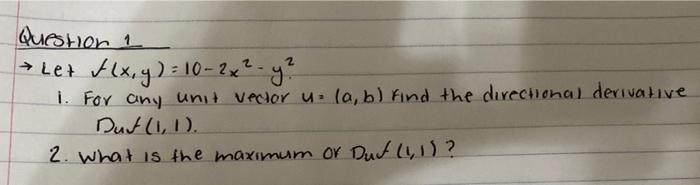 Question 1
→ Let f(x,y) = 10 - 2x² - y².
1. For any unit vector u = (a,b) find the directional derivative
Duf(1,1).
2. what is the maximum of Duf(1,1)?